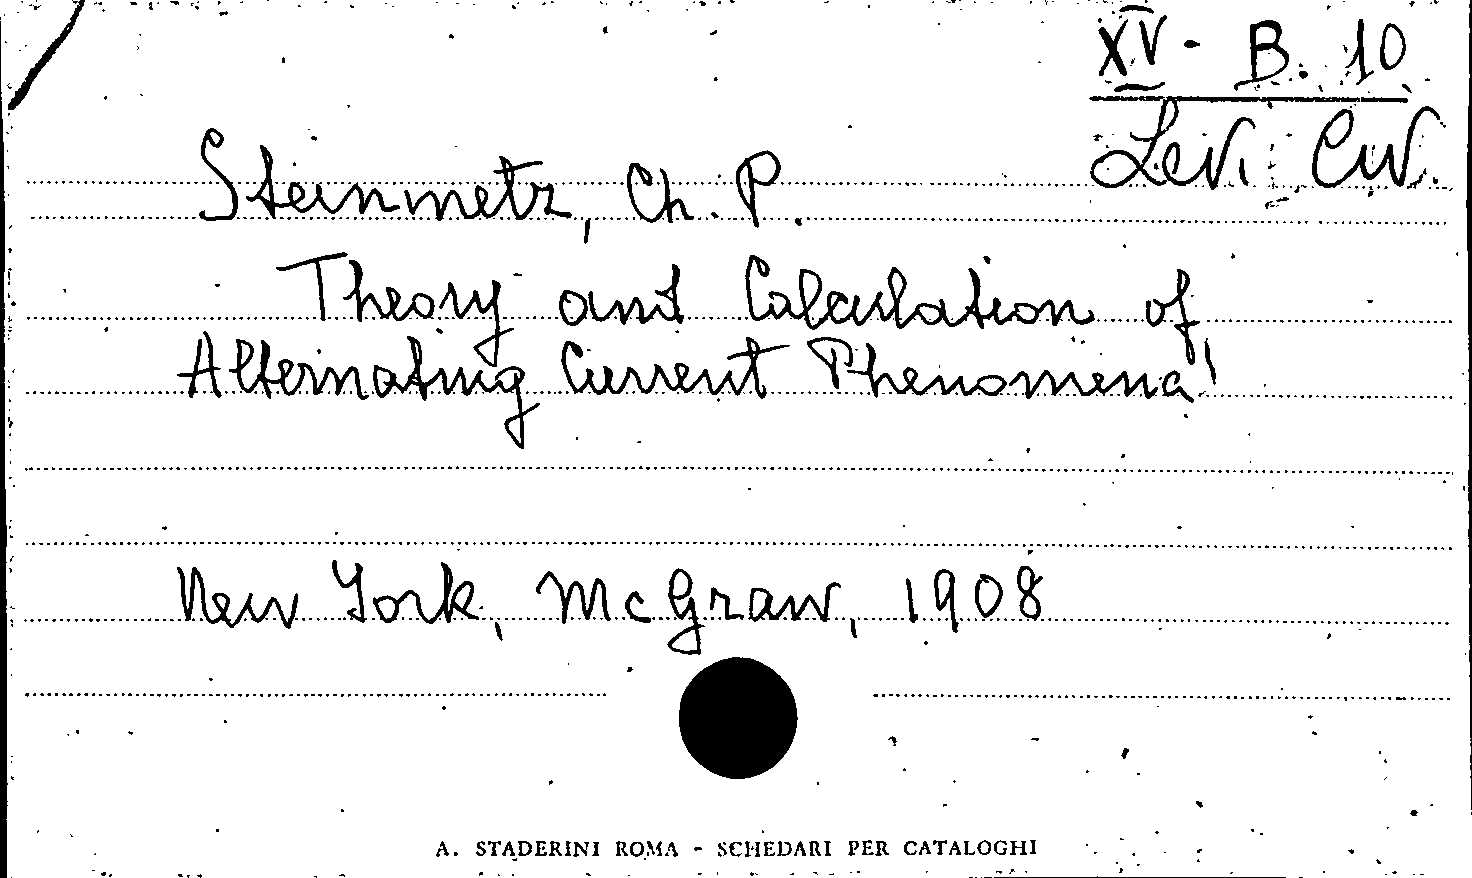 XV - B. 10
Lev. Civ.
Steinmetz, Ch. P.
Theory and Calculation of
Alternating Current Phenomena
New York, McGraw, 1908
A. STADERINI ROMA - SCHEDARI PER CATALOGHI